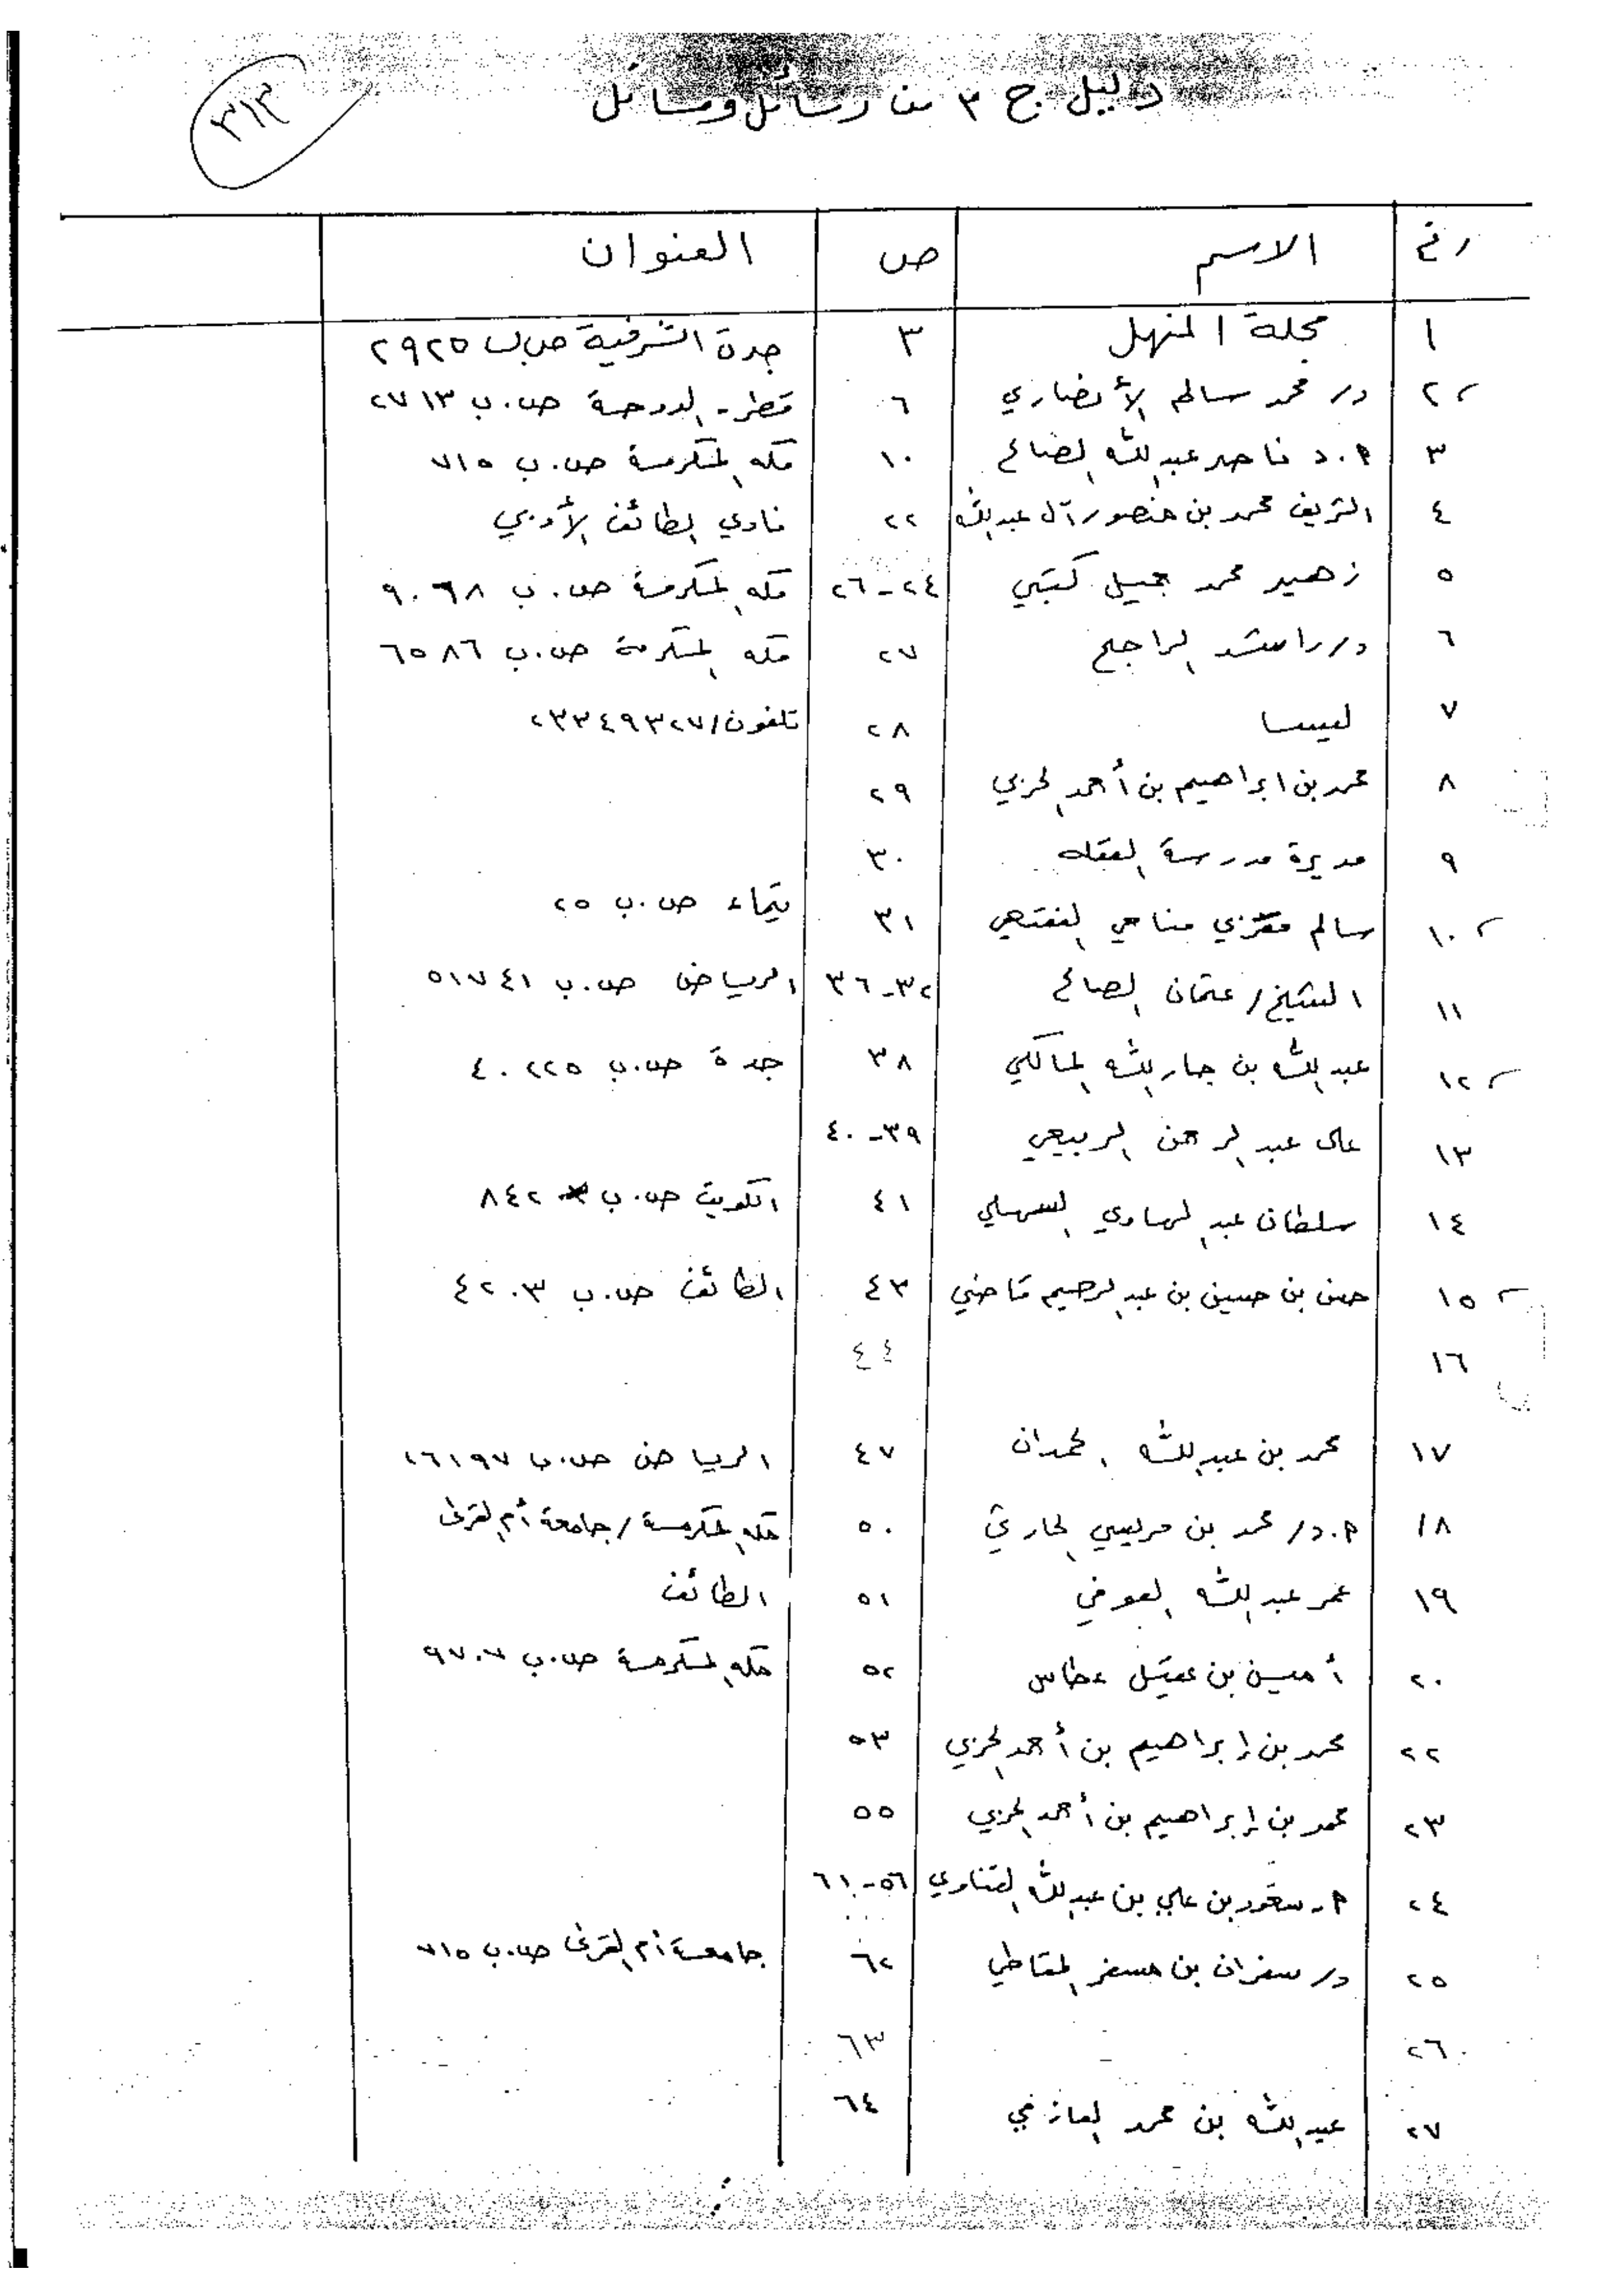 دليل ج ٣ من رسائل ومسائل
٣١٣
رقم الاسم ص العنوان
١ مجلة المنهل ٣ جدة الشرفية ص ب ٢٩٢٥
٢ د/ محمد سالم الأنصاري ٦ قطر - الدوحة ص.ب ٢٧١٣
٣ أ.د ناصر عبدالله الصالح ١٠ مكه المكرمة ص.ب ٧١٥
٤ الشريف محمد بن منصور آل عبدالله ٢٢ نادي الطائف الأدبي
٥ زهير محمد جميل كتبي ٢٤-٢٦ مكه المكرمة ص.ب ٩٠٦٨
٦ د/ راشد الراجح ٢٧ مكه المكرمة ص.ب ٦٥٨٦
٧ ليبيا ٢٨ تلفون/٢٣٣٤٩٣٢٧
٨ محمد بن ابراهيم بن أحمد الحربي ٢٩
٩ مديرة مدرسة العقله ٣٠
١٠ سالم مناحي ٣١ تيماء ص.ب ٢٥
١١ الشيخ/ عثمان الصالح ٣٢-٣٦ الرياض ص.ب ٥١٧٤١
١٢ عبدالله بن جارالله المالكي ٣٨ جدة ص.ب ٤٠٢٢٥
١٣ على عبدالرحمن الربيعي ٣٩-٤٠
١٤ سلطان عبدالهادي السهلي ٤١ الكويت ص.ب ٨٤٢
١٥ حسن بن حسين بن عبدالرحيم قاضي ٤٣ الطائف ص.ب ٤٢٠٣
١٦ ٤٤
١٧ محمد بن عبدالله الحمدان ٤٧ الرياض ص.ب ١٦١٩٧
١٨ أ.د/ محمد بن مريسي الحارثي ٥٠ مكه المكرمة / جامعة أم القرى
١٩ عمر عبدالله العوفي ٥١ الطائف
٢٠ أمين بن عقيل عطاس ٥٢ مكه المكرمة ص.ب ٩٧٠٧
٢٢ محمد بن إبراهيم بن أحمد الحربي ٥٣
٢٣ محمد بن إبراهيم بن أحمد الحربي ٥٥
٢٤ أ. سعود بن علي بن عبدالله القناوي ٥٦-٦١
٢٥ د/ سفران بن مسفر المقاطي ٦٢ جامعة أم القرى ص.ب ٧١٥
٢٦ ٦٣
٢٧ عبدالله بن محمد العازمي ٦٤